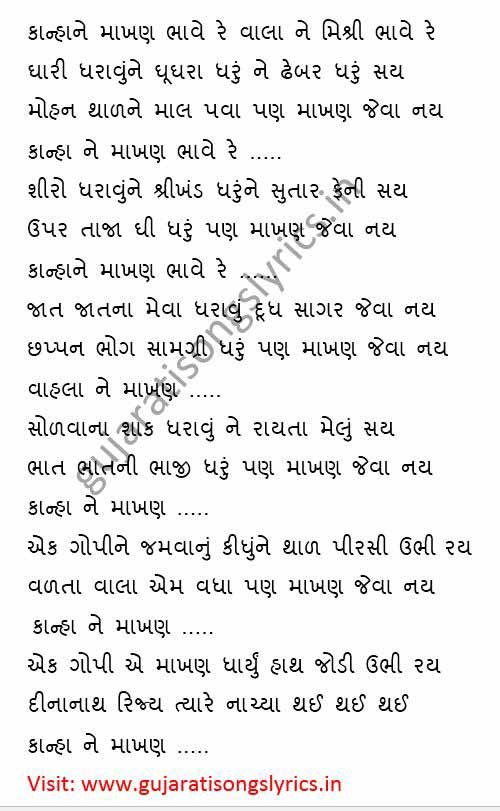 કાન્હાને માખણ ભાવે રે વાલા ને મિશ્રી ભાવે રે
ઘારી ધરાવુંને ઘૂઘરા ધરું ને ઢેબર ધરું સય
મોહન થાળને માલ પવા પણ માખણ જેવા નય
કાન્હા ને માખણ ભાવે રે .....
શીરો ધરાવુંને શ્રીખંડ ધરુંને સુતાર ફેની સય
ઉપર તાજા ઘી ધરું પણ માખણ જેવા નય
કાન્હાને માખણ ભાવે રે ......
જાત જાતના મેવા ધરાવું દૂધ સાગર જેવા નય
છપ્પન ભોગ સામગ્રી ધરું પણ માખણ જેવા નય
વાહલા ને માખણ .....
સોળવાના શાક ધરાવું ને રાયતા મેલું સય
ભાત ભાતની ભાજી ધરું પણ માખણ જેવા નય
કાન્હા ને માખણ .....
એક ગોપીને જમવાનું કીધુંને થાળ પીરસી ઉભી રય
વળતા વાલા એમ વધા પણ માખણ જેવા નય
કાન્હા ને માખણ .....
એક ગોપી એ માખણ ધાર્યું હાથ જોડી ઉભી રય
દીનાનાથ રિજ્ય ત્યારે નાચ્યા થઈ થઈ થઈ
કાન્હા ને માખણ .....
Visit: www.gujaratisongslyrics.in
gujaratisongslyrics.in